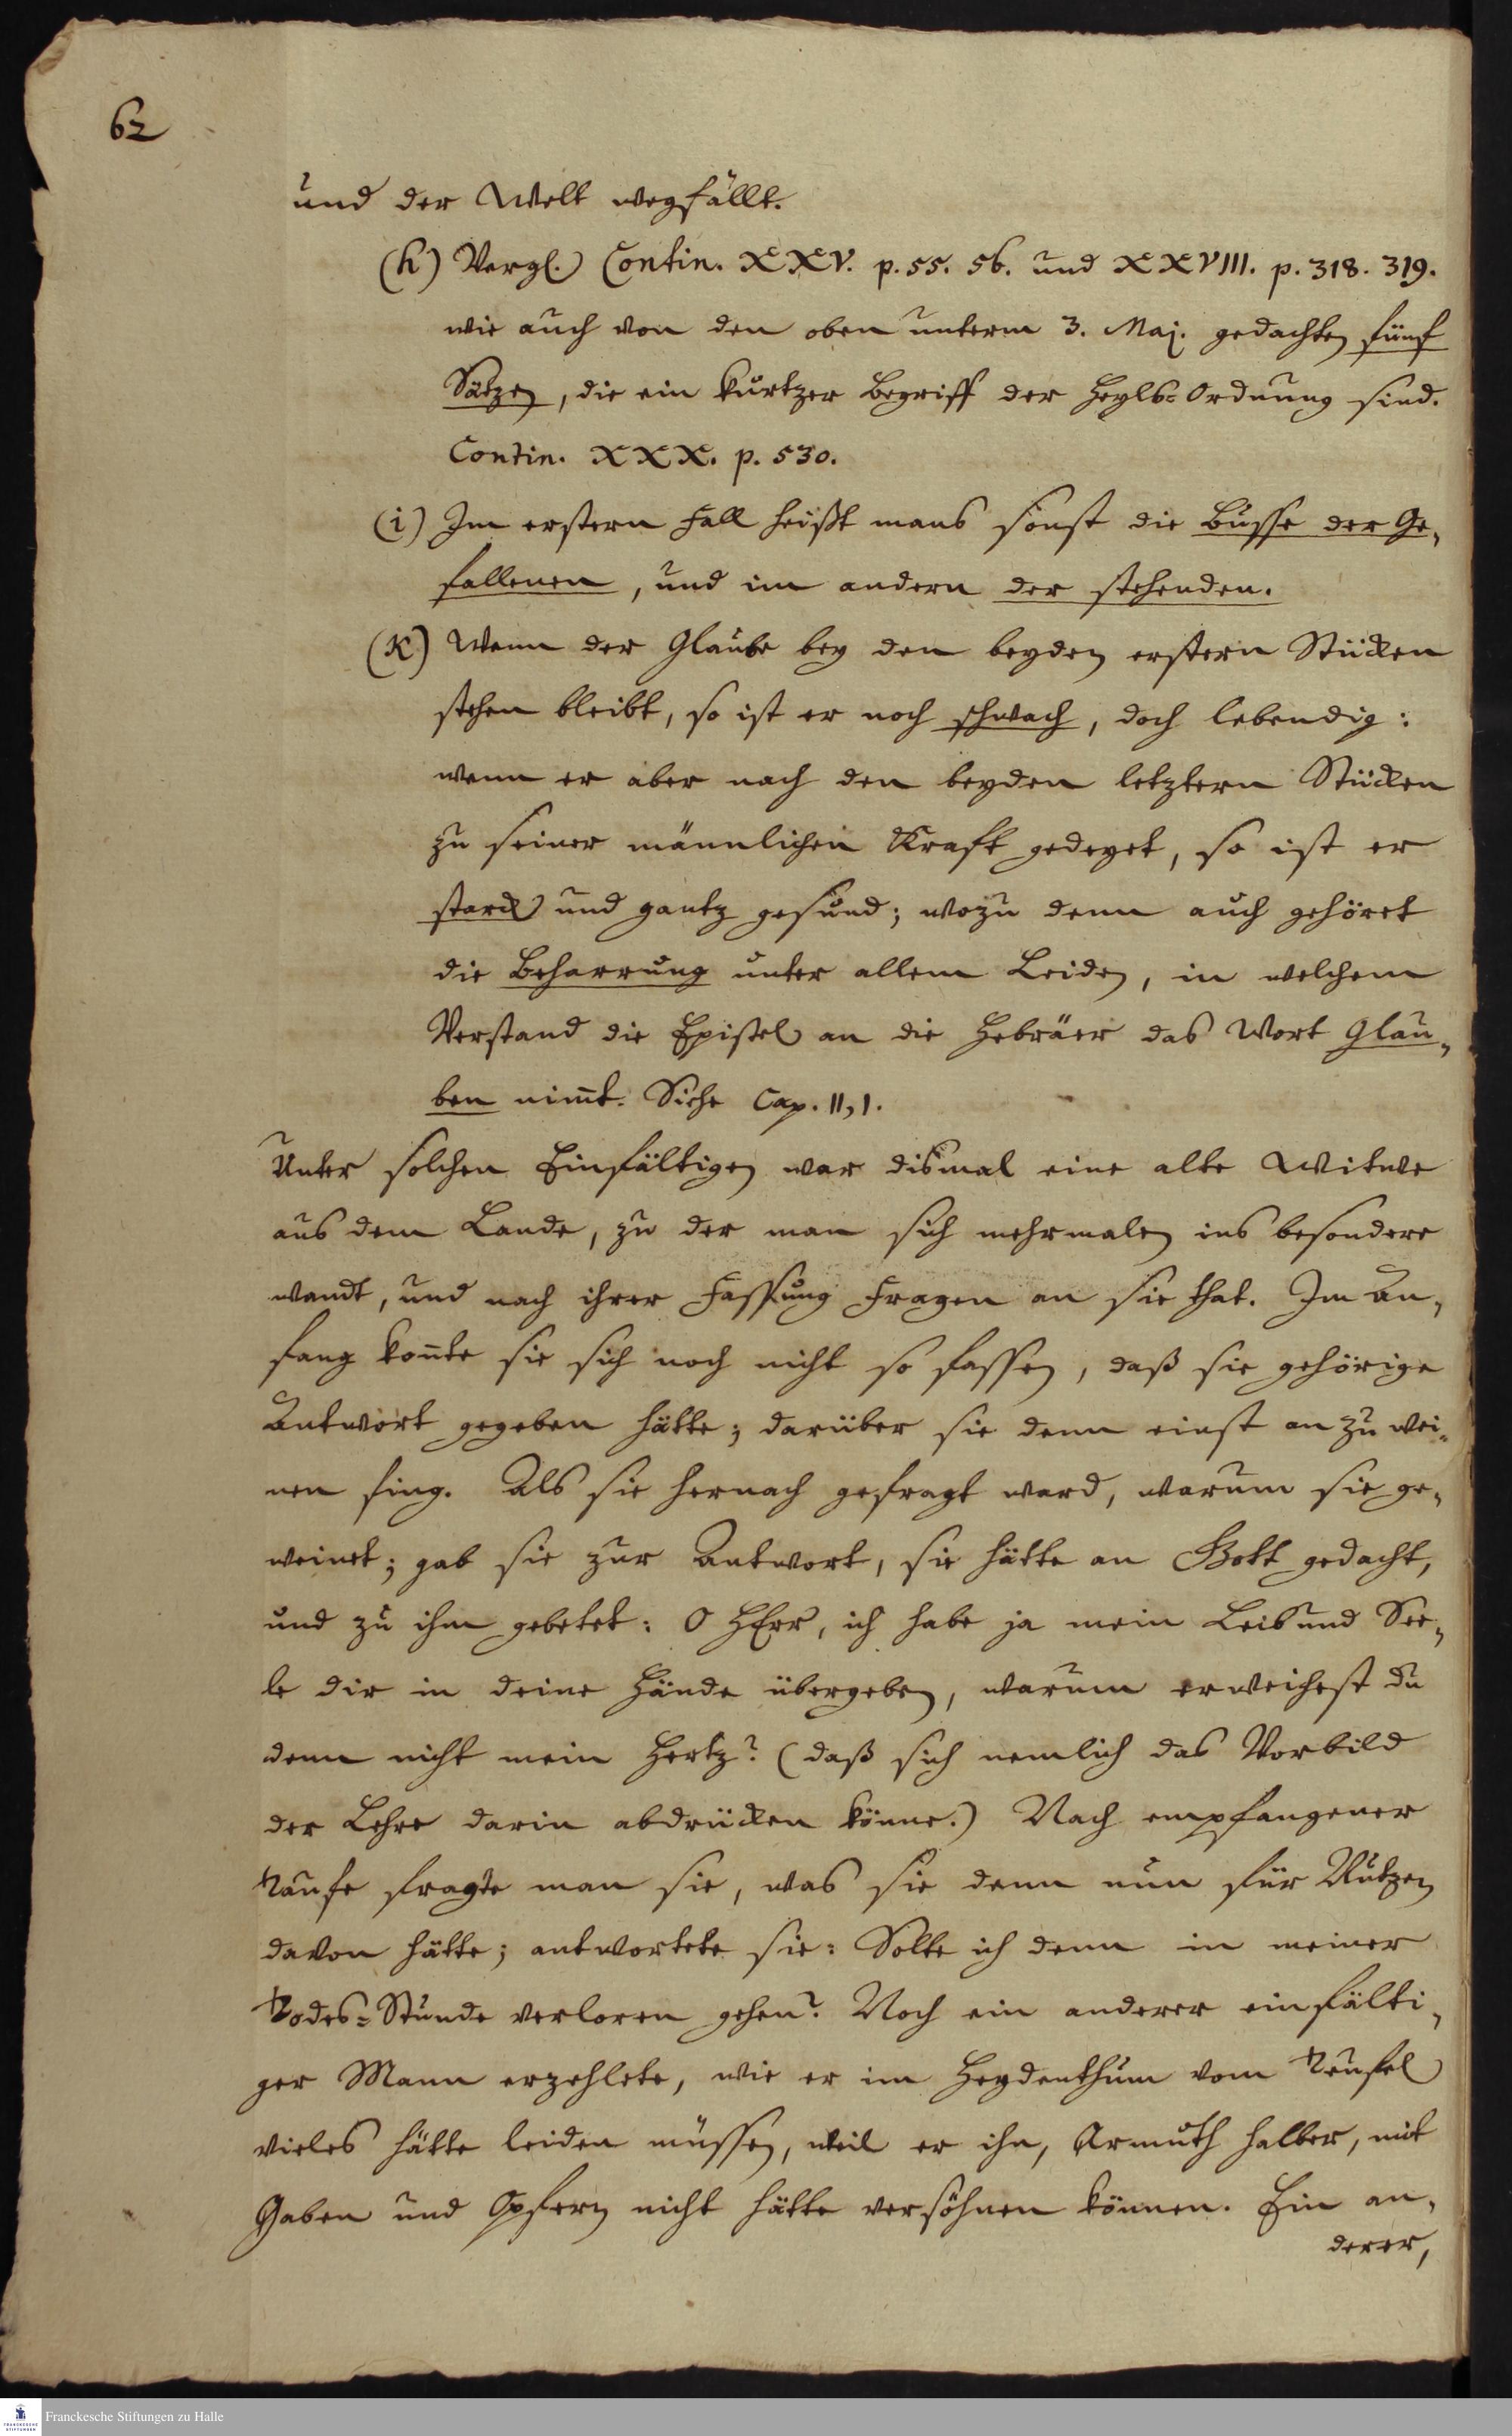 62
und der Welt wegfällt.
(h) Vergl. Contin. XXV. p. 55. 56. und XXVIII. p. 318. 319.
wie auch von den oben unterm 3. Maj. gedachten fünf
Sätzen, die ein kurtzer Begriff der Heyls-Ordnung sind.
Contin. XXX. p. 530.
(i) Im erstern Fall heißt mans sonst die Busse der Ge-
fallenen, und im andern der stehenden.
(K) Wenn der Glaube bey den beyden erstern Stücken
stehen bleibt, so ist er noch schwach, doch lebendig:
wenn er aber nach den beyden letztern Stücken
zu seiner männlichen Kraft gedeyet, so ist er
starck und gantz gesund; wozu denn auch gehöret
die Beharrung unter allem Leiden, in welchem
Verstand die Epistel an die Hebräer das Wort Glau-
ben nim̅t. Siehe Cap. 11,1.
Unter solchen Einfältigen war dismal eine alte Witwe
aus dem Lande, zu der man sich mehrmalen ins besondere
wandt, und nach ihrer Fassung Fragen an sie that. Im An-
fang kon̅te sie sich noch nicht so fassen, daß sie gehörige
Antwort gegeben hätte; darüber sie denn einst an zu wei-
nen fing. Als sie hernach gefragt ward, warum sie ge-
weinet; gab sie zur Antwort, sie hätte an Gott gedacht,
und zu ihm gebetet: O HErr, ich habe ja mein Leib und See-
le dir in deine Hände übergeben, warum erweichest du
denn nicht mein Hertz? (daß sich nemlich das Vorbild
der Lehre darin abdrücken könne.) Nach empfangener
Taufe fragte man sie, was sie denn nun für Nutzen
davon hätte; antwortete sie: Solte ich denn in meiner
Todes-Stunde verloren gehen? Noch ein anderer einfälti-
ger Mann erzehlete, wie er im Heydenthum vom Teufel
vieles hätte leiden müssen, weil er ihn, Armuth halber, mit
Gaben und Opfern nicht hätte versöhnen können. Ein an-
derer,
Franckesche Stiftungen zu Halle